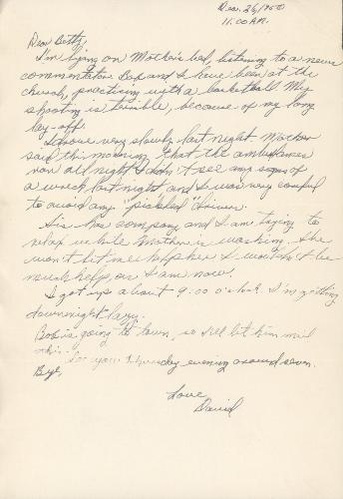 Dec. 26/1950
11:00 A.M.
Dear Betty,
I'm lying on Mother's bed, listening to a news
commentator. Bob and I have been at the
church, practicing with a basketball. My
shooting is terrible, because of my long
lay-off.
I drove very slowly last night. Mother
said this morning that the ambulances
ran all night. I didn't see any signs of
a wreck last night and I was very careful
to avoid any "pickled" drivers.
Sis has company and I am trying to
relax while Mother is washing. She
won't let me help her &
much help, as I am now.
I got up about 9:00 o'clock. I'm getting
downright lazy.
Bob is going to town, so I'll let him mail
this. See you Thursday evening around seven.
Bye,
Love
David